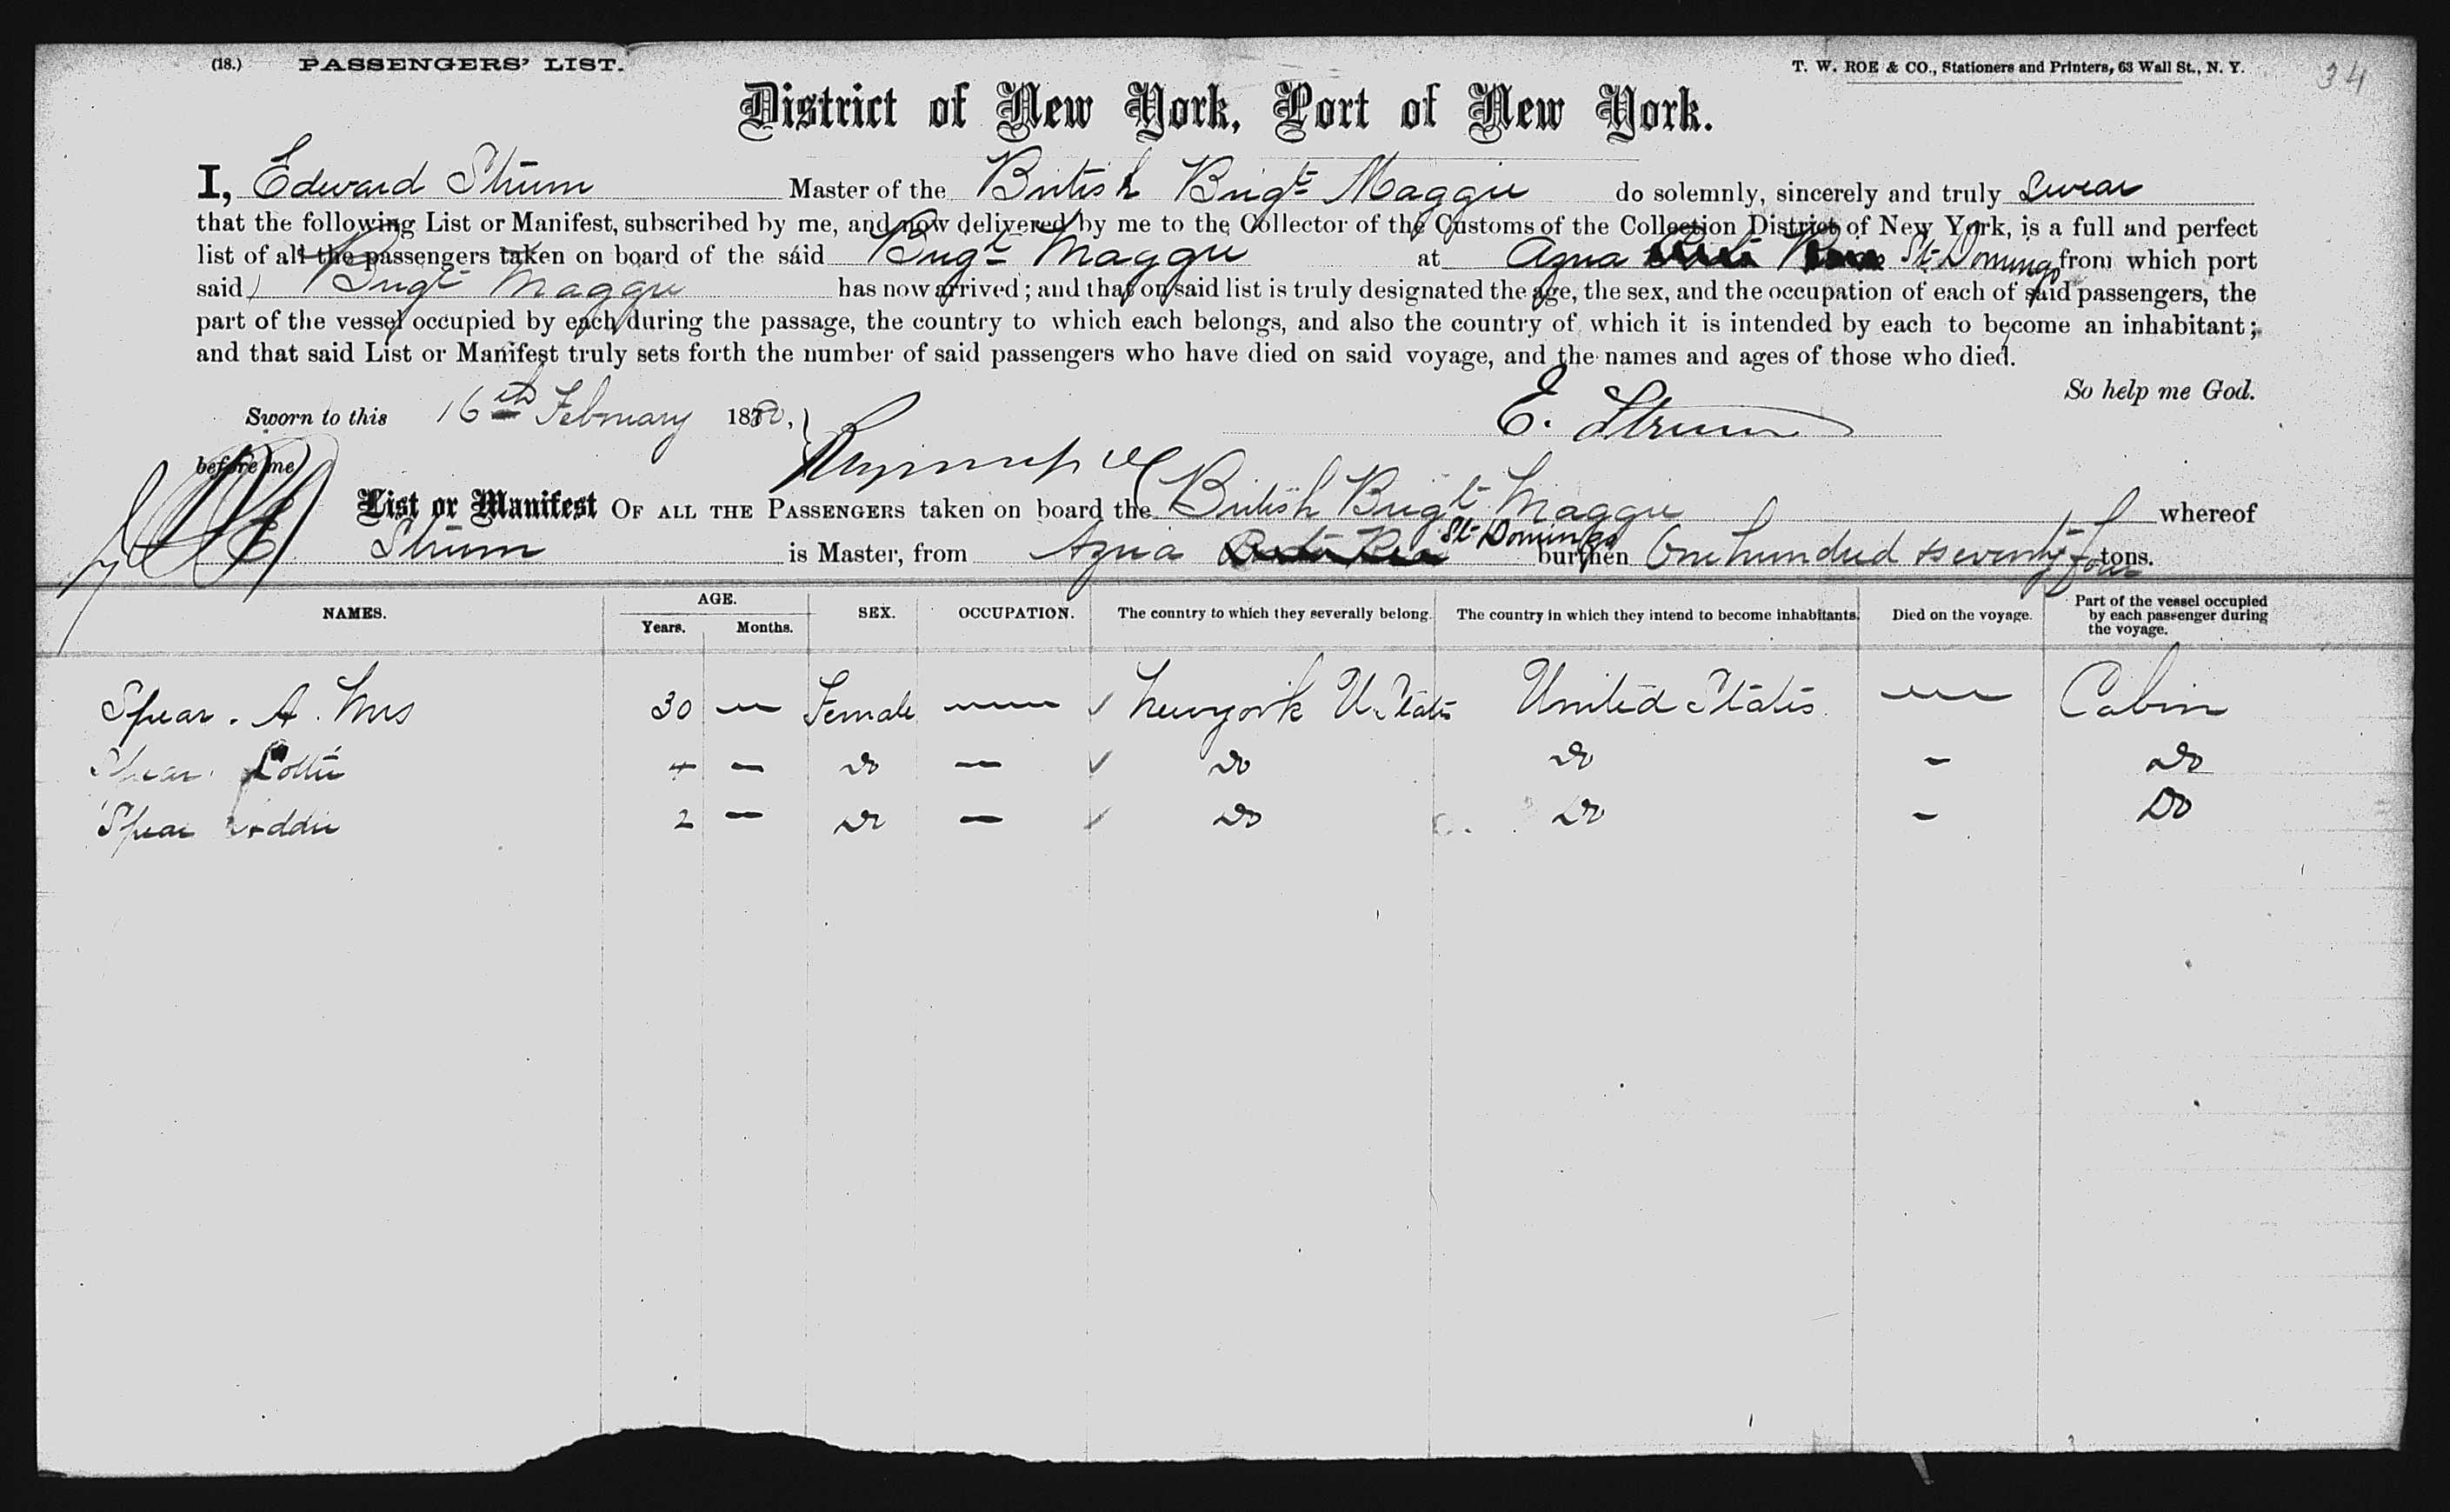 (18.) PASSENGERS' LIST. T. W. ROE & CO., Stationers and Printers, 63 Wall St., N. Y. 34
District of New York, Port of New York.
I, Edward Strum Master of the British Brigt Maggie do solemnly, sincerely and truly swear
that the following List or Manifest, subscribed by me, and now delivered by me to the Collector of the Customs of the Collection District of New York, is a full and perfect
list of all the passengers taken on board of the said Brigt Maggie at Azua St Domingo from which port
said Brigt Maggie has now arrived; and that on said list is truly designated the age, the sex, and the occupation of each of said passengers, the
part of the vessel occupied by each during the passage, the country to which each belongs, and also the country of which it is intended by each to become an inhabitant;
and that said List or Manifest truly sets forth the number of said passengers who have died on said voyage, and the names and ages of those who died.
So help me God.
Sworn to this 16th February 1880, E. Strum
before me
List or Manifest OF ALL THE PASSENGERS taken on board the British Brigt Maggie whereof
E Strum is Master, from Azua St Domingo burthen One hundred & seventy four tons.
NAMES. AGE. Years. Months. SEX. OCCUPATION. The country to which they severally belong. The country in which they intend to become inhabitants. Died on the voyage. Part of the vessel occupied by each passenger during the voyage.
Spear . A . Mrs 30 — Female — ✓ Newyork U. States United States — Cabin
Spear . Lottie 4 — Do — ✓ Do Do — Do
Spear 2 — Do — ✓ Do Do — Do